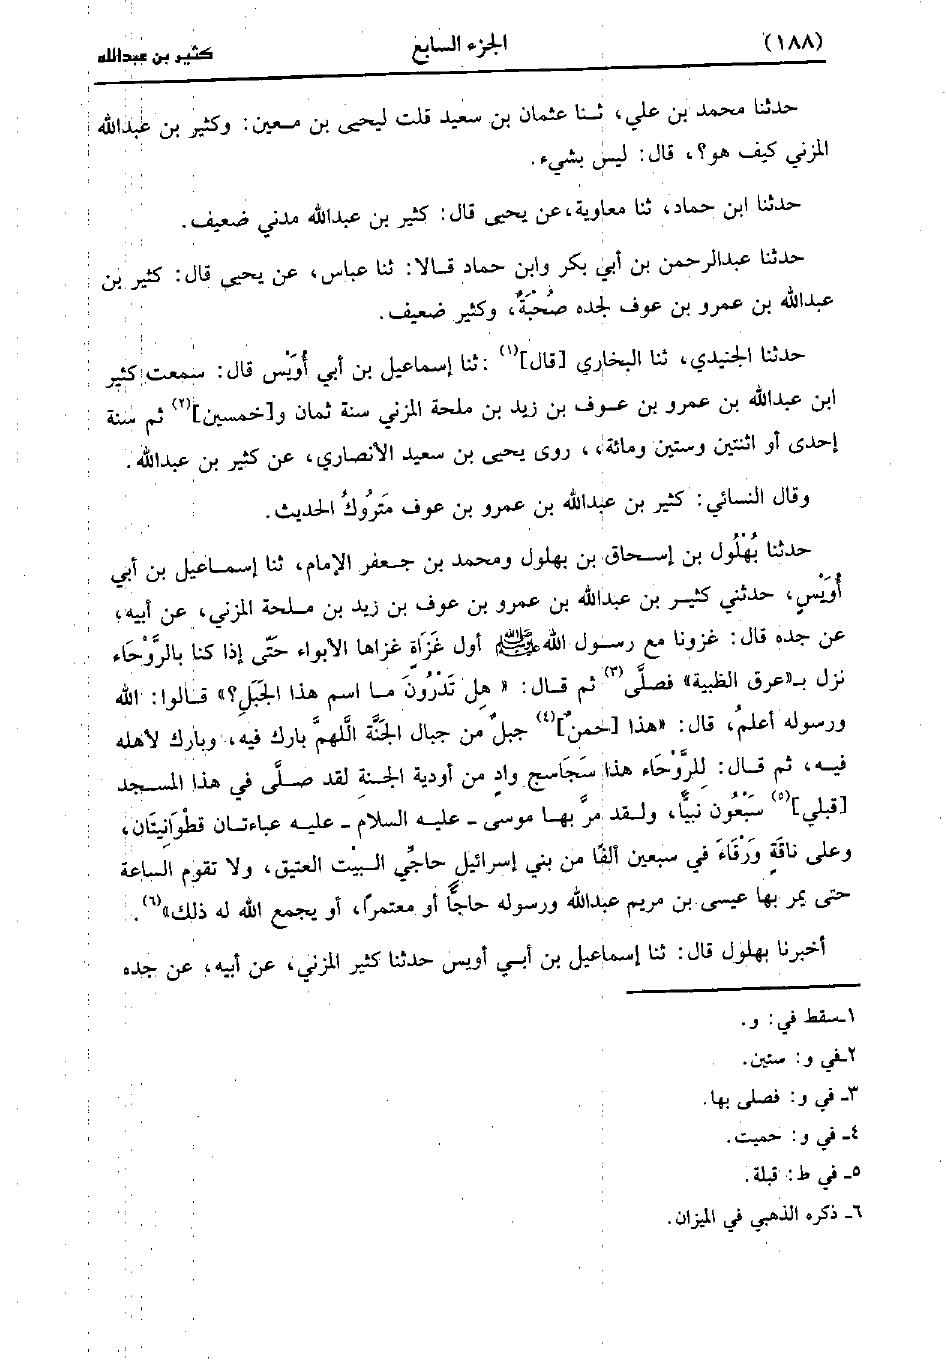 (١٨٨) الجزء السابع كثير بن عبدالله
حدثنا محمد بن علي، ثنا عثمان بن سعيد قلت ليحيى بن معين: وكثير بن عبدالله
المزني كيف هو؟، قال: ليس بشيء.
حدثنا ابن حماد، ثنا معاوية، عن يحيى قال: كثير بن عبدالله مدني ضعيف.
حدثنا عبدالرحمن بن أبي بكر وابن حماد قالا: ثنا عباس، عن يحيى قال: كثير بن
عبدالله بن عمرو بن عوف لجده صُحْبَةٌ، وكثير ضعيف.
حدثنا الجنيدي، ثنا البخاري [قال](١) :ثنا إسماعيل بن أبي أُوَيْس قال: سمعت كثير
ابن عبدالله بن عمرو بن عوف بن زيد بن ملحة المزني سنة ثمان و[خمسين](٢) ثم سنة
إحدى أو اثنتين وستين ومائة،، روى يحيى بن سعيد الأنصاري، عن كثير بن عبدالله.
وقال النسائي: كثير بن عبدالله بن عمرو بن عوف مَتَرُوكُ الحديث.
حدثنا بُهْلُول بن إسحاق بن بهلول ومحمد بن جعفر الإمام، ثنا إسماعيل بن أبي
أُوَيْسٍ، حدثني كثير بن عبدالله بن عمرو بن عوف بن زيد بن ملحة المزني، عن أبيه،
عن جده قال: غزونا مع رسول الله ﷺ أول غَزَاةٍ غزاها الأبواء حَتَّى إذا كنا بالرَّوْحَاء
نزل بـ«عرق الظبية» فصلَّى(٣) ثم قال: « هل تَدْرُونَ ما اسم هذا الجَبَلِ؟» قالوا: الله
ورسوله أعلمُ، قال: «هذا [خمنٌ](٤) جبلٌ من جبال الجَنَّة اللَّهمَّ بارك فيه، وبارك لأهله
فيه، ثم قال: للرَّوْحَاء هذا سَجَاسج وادٍ من أودية الجنة لقد صلَّى في هذا المسجد
[قبلي](٥) سَبْعُون نبيًّا، ولقد مرَّ بها موسى ـ عليه السلام ـ عليه عباءتان قطْوَانيَتَان،
وعلى ناقَةٍ وَرْقَاءَ في سبعين ألفًا من بني إسرائيل حاجِّي البيْت العتيق، ولا تقوم الساعة
حتى يمر بها عيسى بن مريم عبدالله ورسوله حاجًّا أو معتمرًا، أو يجمع الله له ذلك»(٦).
أخبرنا بهلول قال: ثنا إسماعيل بن أبي أويس حدثنا كثير المزني، عن أبيه، عن جده
١ـ سقط في: و.
٢ـ في و: ستين.
٣ـ في و: فصلى بها.
٤ـ في و: حميت.
٥ـ في ط: قبلة.
٦ـ ذكره الذهبي في الميزان.